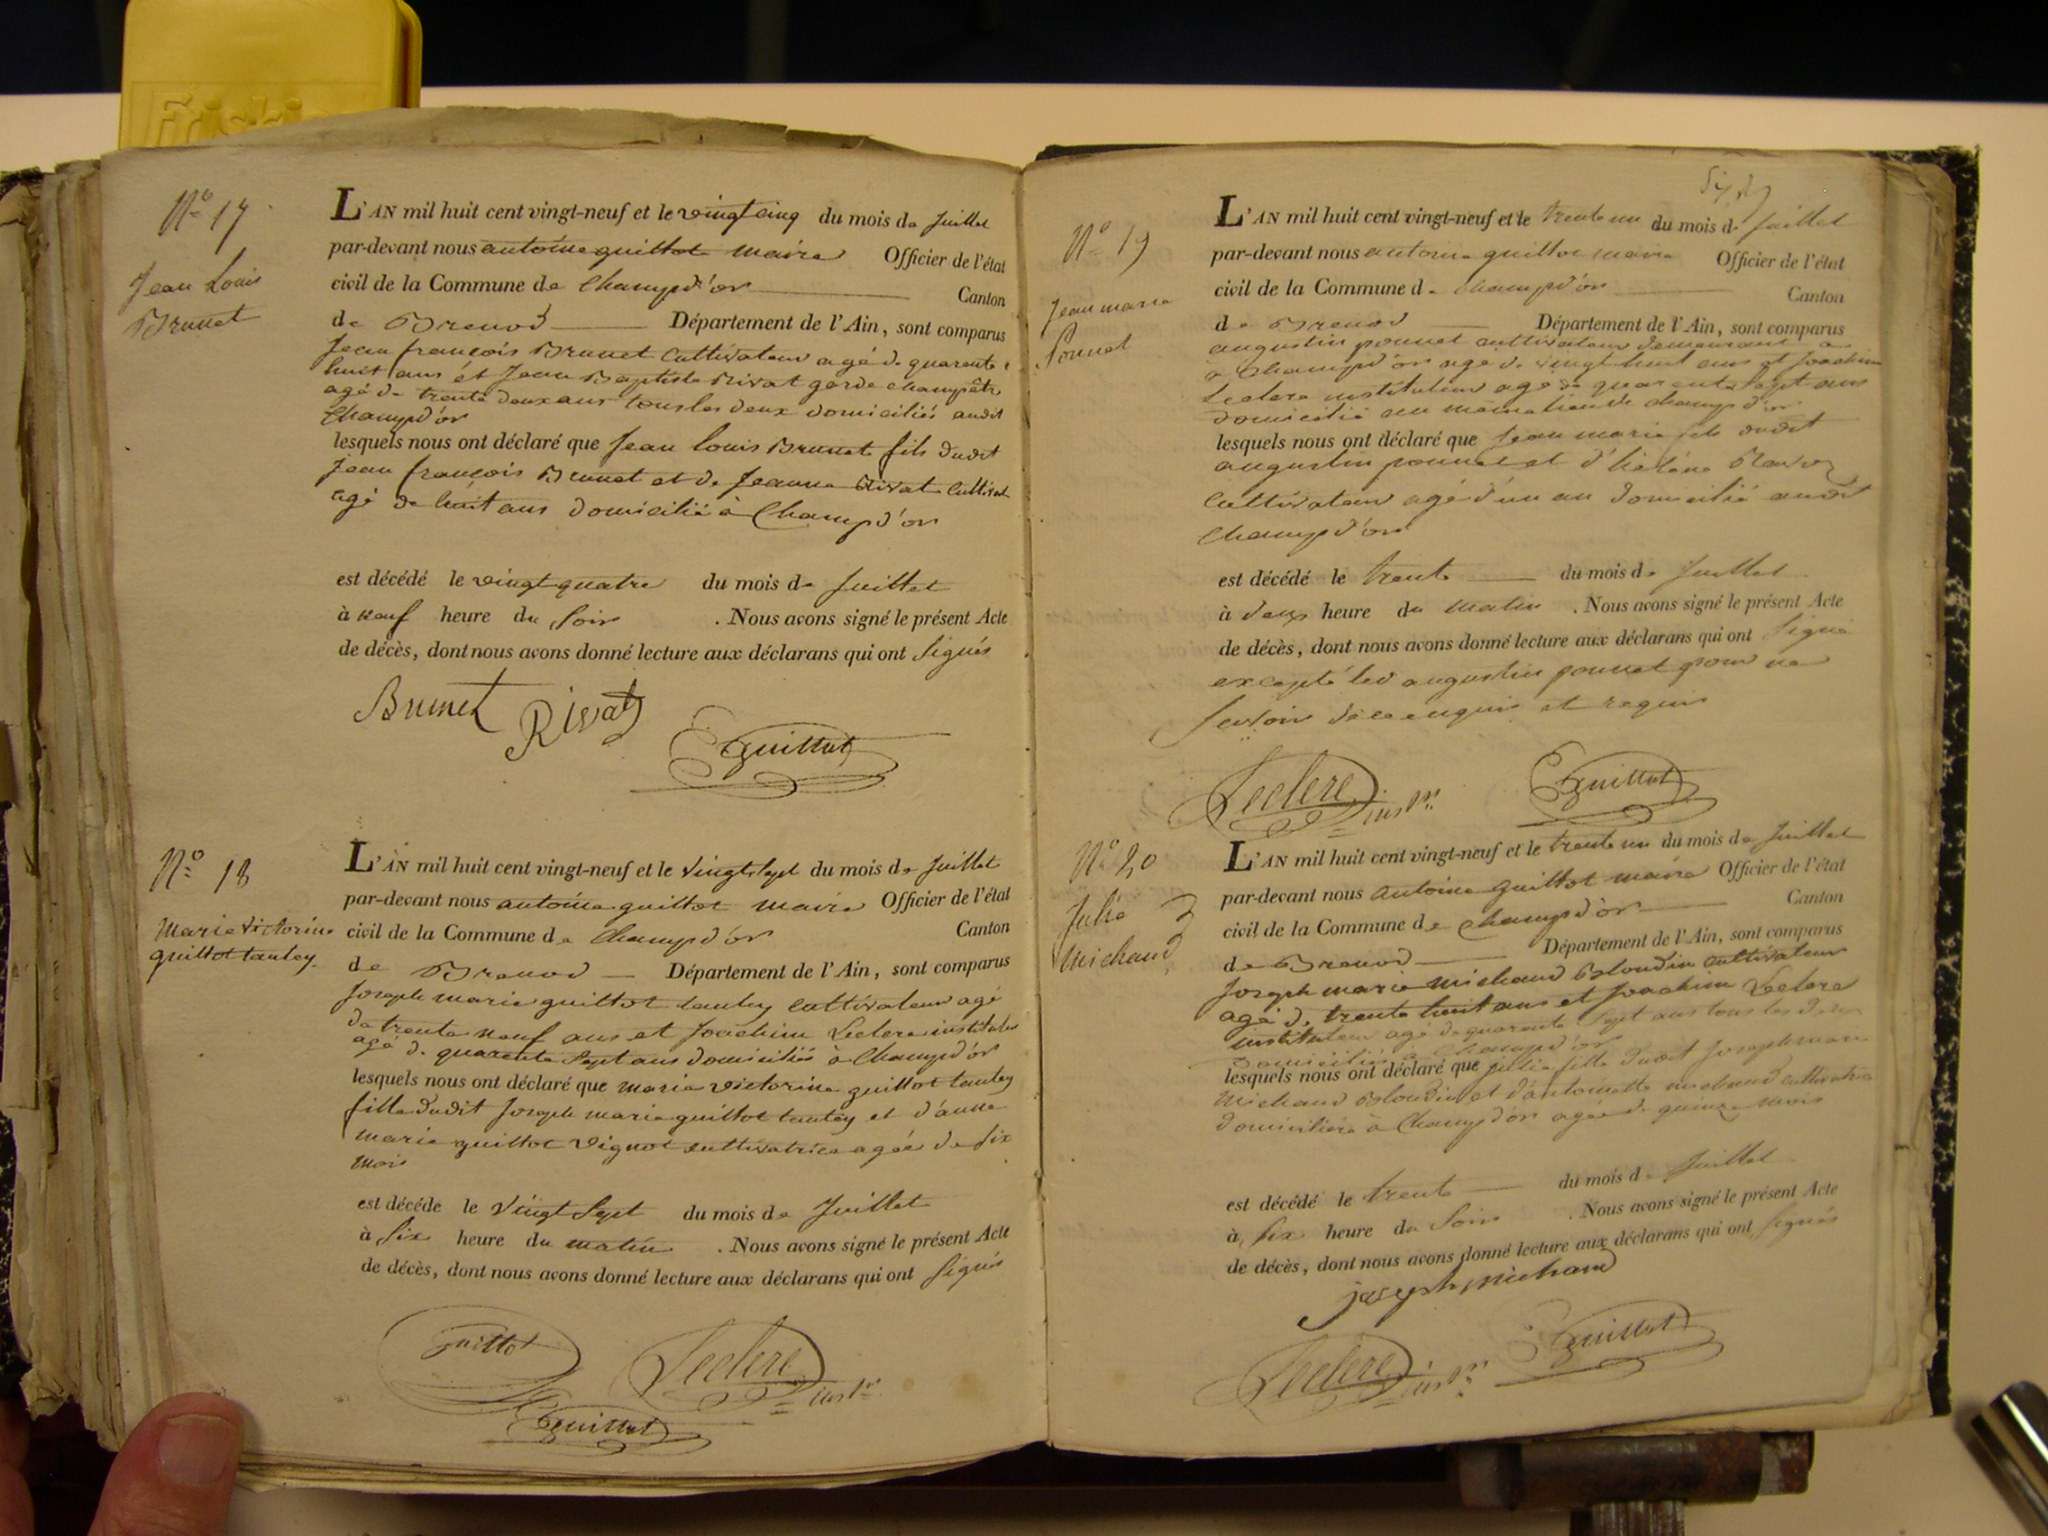 Friskies
N° 17
Jean Louis
Brunet
L'AN mil huit cent vingt-neuf et le vingt cinq du mois de Juillet
par-devant nous antoine guillot maire Officier de l'état
civil de la Commune de Champd'or Canton
de Brenod Département de l'Ain, sont comparus
Jean françois Brunet Cultivateur agé de quarente
huit ans et Jean Baptiste Rivat garde champêtre
agé de trente deux ans tous les deux domiciliés audit
Champd'or
lesquels nous ont déclaré que Jean Louis Brunet fils dudit
Jean françois Brunet et de Jeanne Rivat Cultivat
agé de huit ans domicilié à Champd'or
est décédé le vingt quatre du mois de Juillet
à neuf heure du soir . Nous avons signé le présent Acte
de décès, dont nous avons donné lecture aux déclarans qui ont signés
Brunet Rivat
Guillot
N° 18
Marie victorine
guillot tantey
L'AN mil huit cent vingt-neuf et le vingt sept du mois de Juillet
par-devant nous antoine guillot maire Officier de l'état
civil de la Commune de Champd'or Canton
de Brenod Département de l'Ain, sont comparus
Joseph marie guillot tantey cultivateur agé
de trente neuf ans et Joachim Leclere instituteur
agé de quarente sept ans domiciliés à Champd'or
lesquels nous ont déclaré que marie victorine guillot tantey
fille dudit Joseph marie guillot tantey et d'anne
marie guillot vignot cultivatrice agée de six
mois
est décédé le vingt sept du mois de Juillet
à six heure du matin . Nous avons signé le présent Acte
de décès, dont nous avons donné lecture aux déclarans qui ont signés
Guillot Leclere inst.r
Guillot
N° 19
Jean marie
Ponnet
L'AN mil huit cent vingt-neuf et le trente un du mois de Juillet
par-devant nous antoine guillot maire Officier de l'état
civil de la Commune de Champd'or Canton
de Brenod Département de l'Ain, sont comparus
augustin ponnet cultivateur demeurant a
a Champd'or agé de vingt huit ans et Joachim
Leclere instituteur agé de quarente sept ans
domicilié au même lieu de Champd'or
lesquels nous ont déclaré que Jean marie fils dudit
augustin ponnet et d'hélène
Cultivateur agé d'un an domicilié audit
Champd'or
est décédé le trente du mois de Juillet
à deux heure du matin . Nous avons signé le présent Acte
de décès, dont nous avons donné lecture aux déclarans qui ont signé
excepté led augustin ponnet pour ne
savoir de ce enquis et requis
Leclere inst.r Guillot
N° 20
Julie
Michaud
L'AN mil huit cent vingt-neuf et le trente un du mois de Juillet
par-devant nous antoine guillot maire Officier de l'état
civil de la Commune de Champd'or Canton
de Brenod Département de l'Ain, sont comparus
Joseph marie michaud Blondin cultivateur
agé de trente huit ans et Joachim Leclere
instituteur agé de quarente sept ans tous les deux
domiciliés a Champd'or
lesquels nous ont déclaré que Julie fille dudit Joseph marie
Michaud Blondin et d'antoinette michaud cultivatrice
domiciliée à Champd'or agée de quinze mois
est décédé le trente du mois de Juillet
à six heure du soir . Nous avons signé le présent Acte
de décès, dont nous avons donné lecture aux déclarans qui ont signés
joseph michaud
Leclere inst.r Guillot